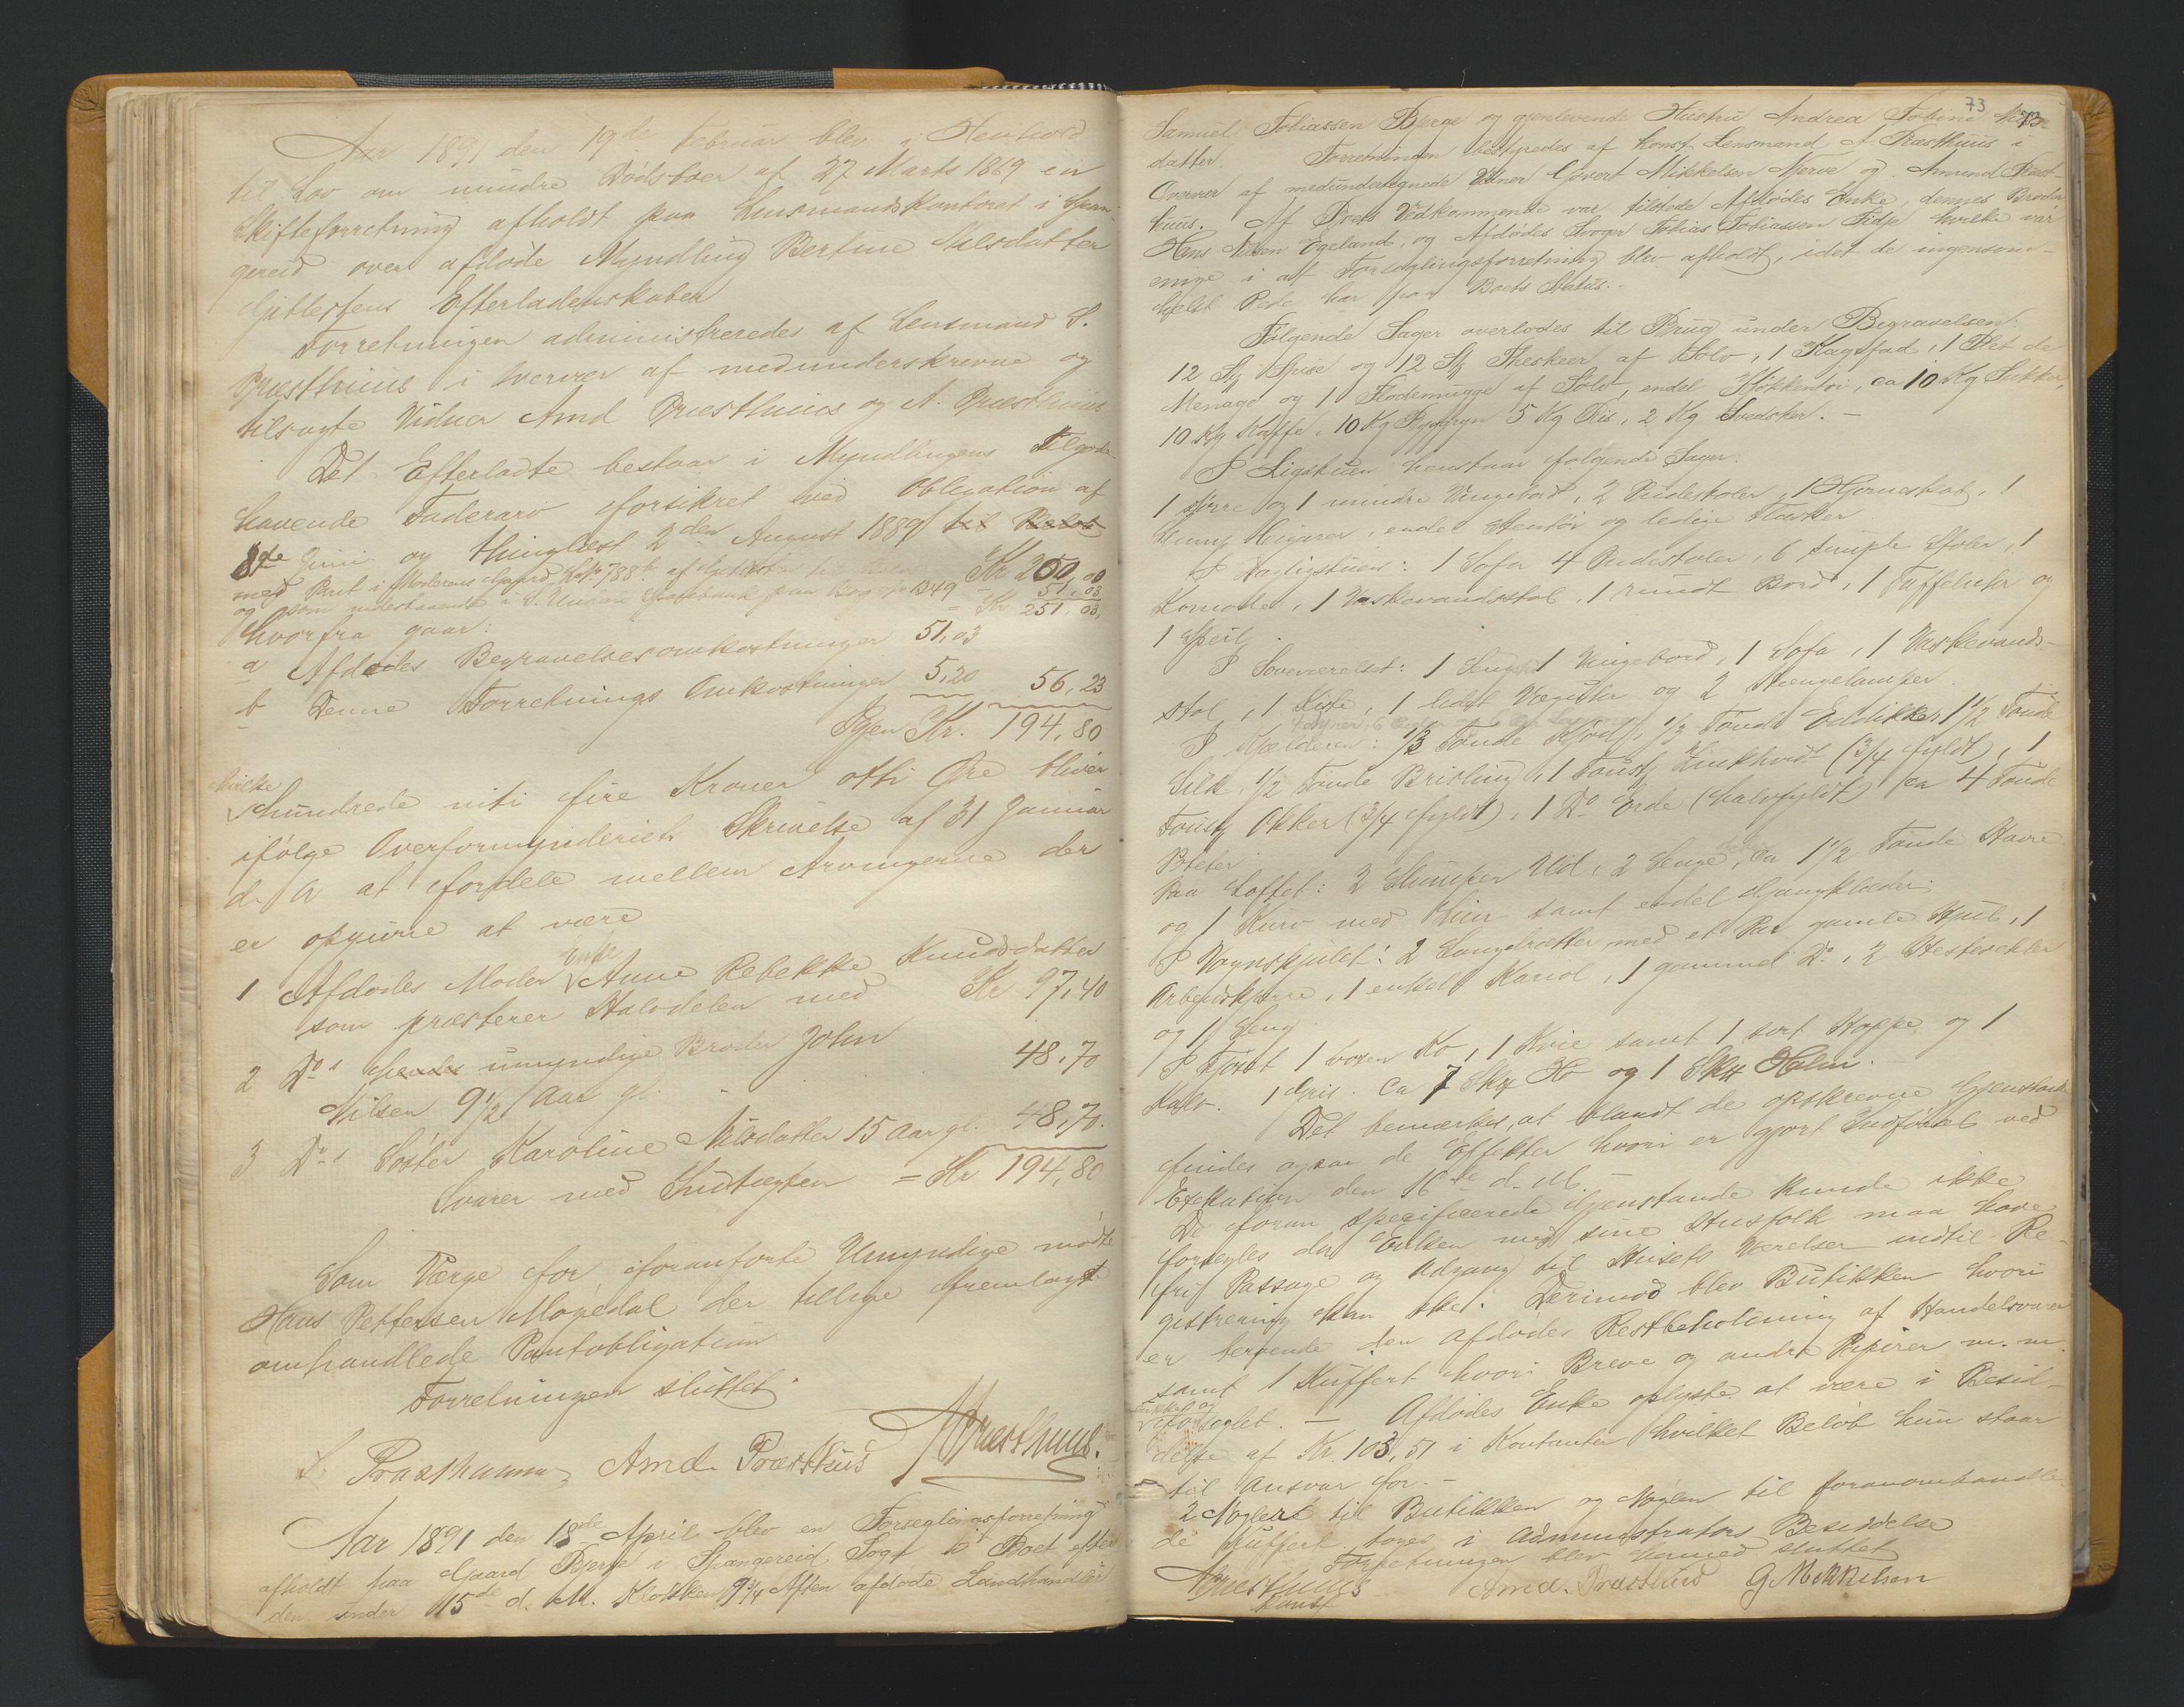 Aar 1891 den 19de Februar blev i Henhold
til Lov om mindre Dødsboer af 27 Marts 1869 en
Skifteforretning afholdt paa Lensmandskontoret i Span-
gereid over afdøde Myndling Bertine Nilsdatter
Gitlestens Efterladenskaber
Forretningen administreredes af Lensmand S.
Præsthuus i Overvær af medunderskrevne og
tilsagte Vidner Amd Præsthuus og A. Præsthuus
Det Efterladte bestaar i Myndlingens Tilgode-
havende Faderarv forsikret ved Obligation af
8de Juni og thinglæst 2den August 1889 til Beløb
med Pant i Moderens Gaard, L.No 788b af Kr 200,00
og som indestaaende i S. Undals Sparebank paa Bog No 1349 - 51,03
hvorfra gaar: = Kr 251,03,
a Afdødes Begravelsesomkostninger 51,03
b Denne Forretnings Omkostninger 5,20 56,23
Igjen Kr. 194,80
hvilke
hundrede niti fire Kroner otti Øre bliver
ifølge Overformynderiets Skrivelse af 31 Januar
d. A at fordele mellem Arvingerne der
er opgivne at være
Enke
1 Afdødes Moder Anne Rebekke Knudsdatter
som præsterer Halvdelen med Kr 97,40
2 Do s hendes umyndige Broder John
Nilsen 9½ Aar gl. - 48,70
3 Do s Søster Karoline Nilsdatter 15 Aar gl. 48,70.
Svarer med Indtægten = Kr 194,80
Som Værge for foranførte Umyndige mødte
Hans Pettersen Møgedal der tillige fremlagde
omhandlede Pantobligation
Forretningen sluttet.
S. Præsthuus Amd. Præsthuus APræsthuus.
Aar 1891 den 18de April blev en Forseglingsforretning
afholdt paa Gaard Bjerge i Spangereid Sogn i Boet efter
den under 15de d. M. Klokken 9¾ Aften afdøde Landhandler
73
Samuel Tobiassen Bjerge og gjenlevende Hustru Andrea Tobine Nils-
datter. Forretningen bestyredes af konst. Lensmand A Præsthuus i
Overvær af medundertegnede Vidner Govert Mikkelsen Njerve og Amund Præst-
huus. Af Boets Vedkommende var tilstede Afdødes Enke, dennes Broder
Hans Nilsen Egeland, og Afdødes Svoger Tobias Tobiassen Fidje hvilke var
enige i at Forseglingsforretning blev afholdt, idet de ingensom-
helst Rede har paa Boets Status.-
Følgende Sager overlodes til Brug under Begravelsen:
12 St Spise og 12 St Theskeer af Sølv, 1 Kagefad, 1 Plet de
Menage og 1 Flødemugge af Sølv, endel Kjøkkentøi, ca 10 Kg Sukker,
10 Kg Kaffe, 10 Kg Byggryn 5 Kg Ris, 2 Kg Svedsker. -
I Ligstuen henstaar følgende Sager:
1 større og 1 mindre Vingebord, 2 Pindestoler, 1 Hjørneskab, 1
Slump Cigarer, endel Stentøi og ledige Flasker
I Dagligstuen: 1 Sofa 4 Pindestoler 6 simple Stoler, 1
Komode, 1 Vaskevandsstol, 1 rundt Bord, 1 Taffeluhr og
1 Speil.
I Soveværelset: 1 Seng 1 Vingebord, 1 Sofa, 1 Vaskevands-
stol, 1 Kiste, 1 lidet Væguhr og 2 Hængelamper
I Kjælderen: ⅓ Tønde Kjød, ½ Tønde Eddikke, 1½ Tønde
Sild, ½ Tønde Brisling, 1 Zinkhvidt (3/4 fyldt), 1
Okker (3/4 fyldt), 1 Do Erde (halvfyldt) ca 4 Tønde
Poteter
Paa Loftet: 2 Slumper Uld, 2 Senge, ca 1½ Tønde Havre
og 1 Kurv med samt endel Gangklæder.
I Vognskjulet: 2 Langdrætter med et Par gamle Hjul, 1
Arbeidskjerre, 1 enkel Kariol, 1 gammel Do, 2 Hesteseler
og 1 Seng
I Fjøset 1 voxen Ko, 1 Kvie samt 1 sort Hoppe og 1
Kalv. 1 Gris. Ca 7 Skp Hø og 1 Skp Halm.
Det bemærkes, at blandt de opskrevne Gjenstande
findes ogsaa de Effekter hvori er gjort Indførsel ved
Exekution den 16de d. M.
De foran specificerede Gjenstande kunde ikke
forsegles da Enken med sine Husfolk maa have
fri Passage og Adgang til Husets Værelser indtil Re-
gistrering kan ske. Derimod blev Butikken hvori
er beroende den afdødes Restbeholdning af Handelsvarer
samt 1 Kuffert hvori Breve og andre Papirer m. m.
lukket og
forseglet. - Afdødes Enke oplyste at være i Besid-
delse af Kr. 103,51 i Kontanter hvilket Beløb hun staar
til Ansvar for.-
2 Nøgler til Butikken og Nøglen til foranomhandle-
de Kuffert toges i Administrators Besiddelse
Forretningen blev hermed sluttet
APræsthuus Amd. Præsthuus G Mikkelsen
konst